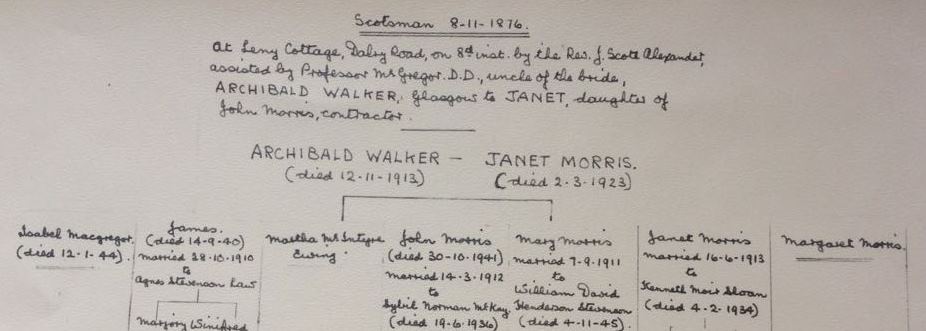 Scotsman 8-11-1876.
At Leny Cottage, Dalry Road, on 8th inst. by the Rev. J. Scott Alexander,
assisted by Professor McGregor. D.D., uncle of the bride,
ARCHIBALD WALKER, Glasgow to JANET, daughter of
John Morris, contractor.
ARCHIBALD WALKER — JANET MORRIS.
(died 12-11-1913) (died 2-3-1923)
Isabel Macgregor.
(died 12-1-44).
James.
(died 14-9-40)
married 28-10-1910
to
Agnes Stevenson Law
Marjory Winifred
Martha McIntyre
Ewing
John Morris
(died 30-10-1941)
married 14-3-1912
to
Sybil Norman McKay
(died 19-6-1936)
Mary Morris
married 7-9-1911
to
William David
Henderson Stevenson
(died 4-11-45).
Janet Morris
married 16-6-1913
to
Kenneth Moir Sloan
(died 4-2-1934)
Margaret Morris.